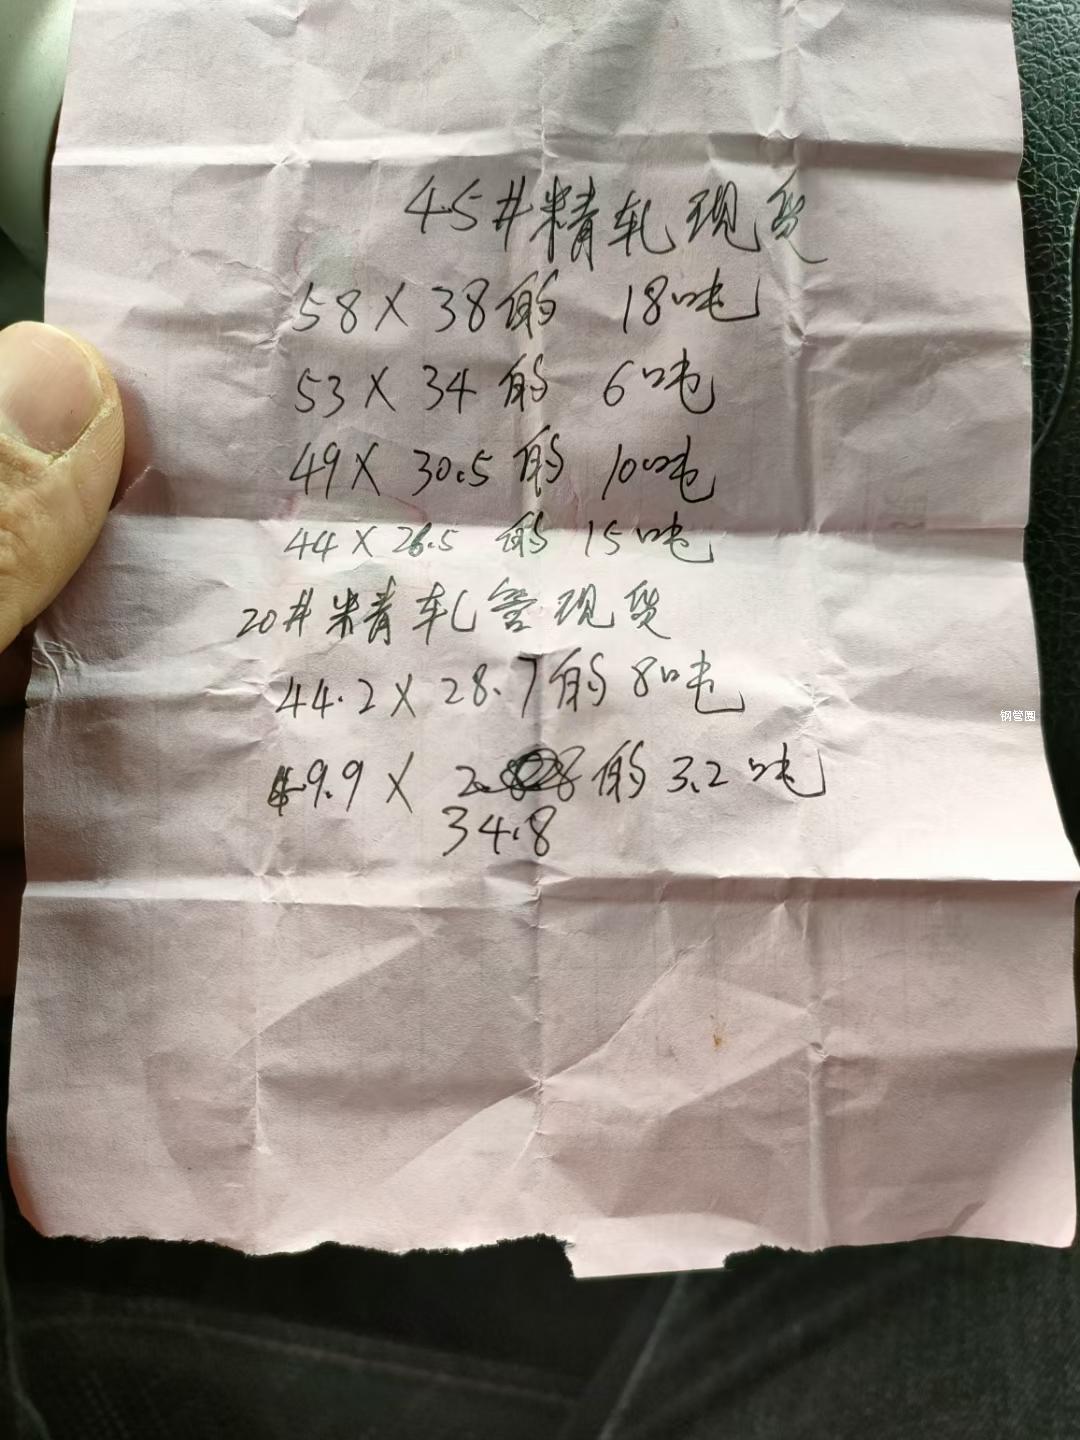 45#精轧现货
58X38的 18吨
53X34的 6吨
49X30.5的 10吨
44X26.5的 15吨
20#精轧管现货
44.2X28.7的8吨
钢管圈
49.9X 的3.2吨
34.8